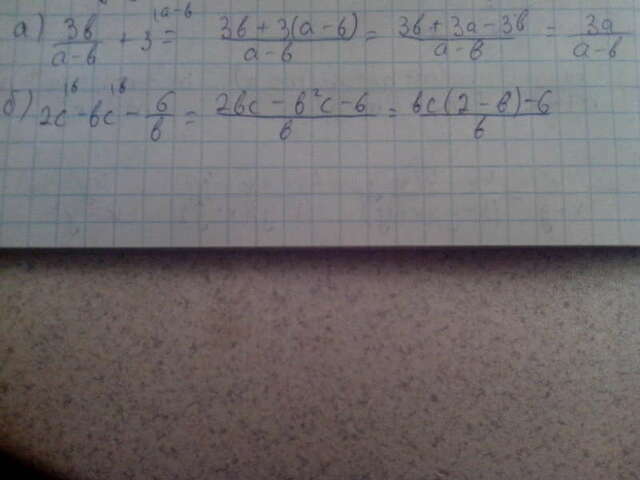 а) 3в/(а-в) + 3^{\а-в} = (3в + 3(а-в))/(а-в) = (3в + 3а - 3в)/(а-в) = 3а/(а-в)
б) 2с^{\в} - вс^{\в} - 6/в = (2вс - в²с - 6)/в = (вс(2-в) - 6)/в